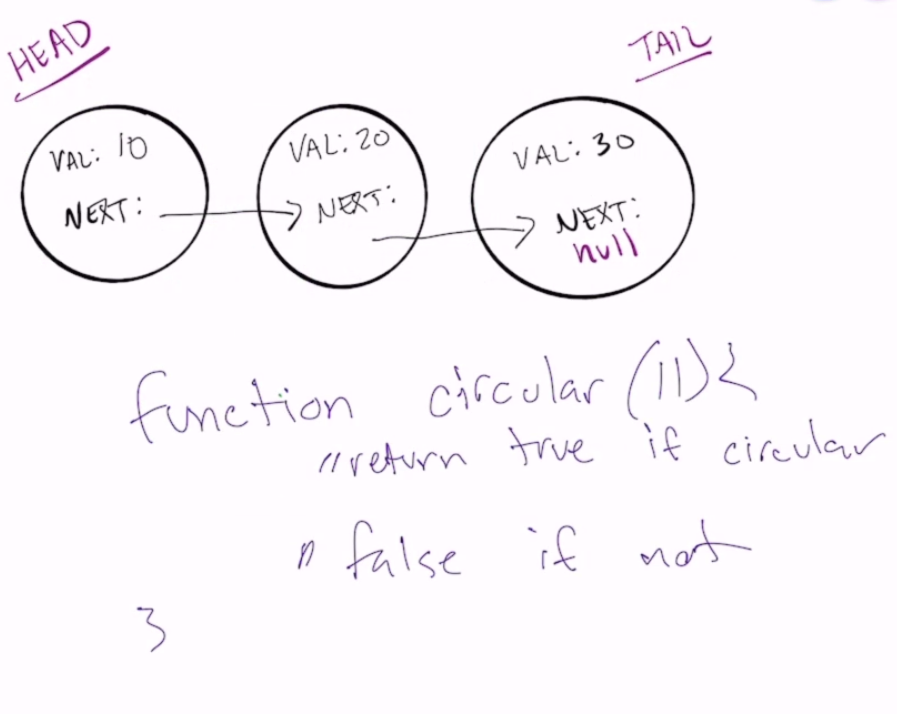 HEAD
TAIL
VAL: 10
NEXT:
VAL: 20
NEXT:
VAL: 30
NEXT:
null
function circular (ll){
//return true if circular
// false if not
}